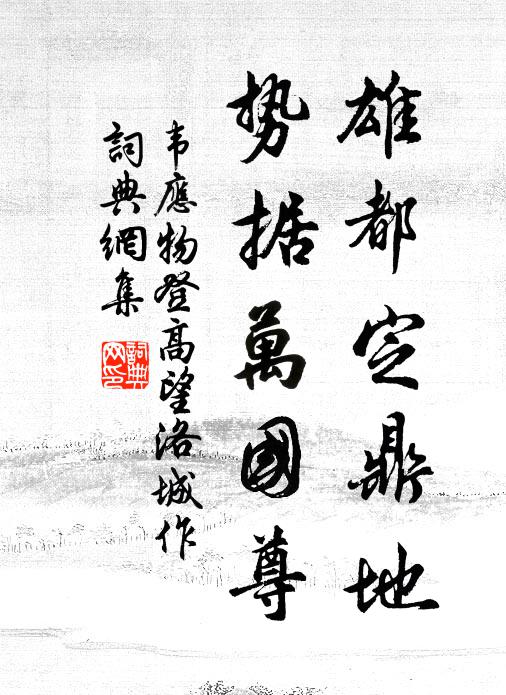 雄都定鼎地
勢据萬國尊
韦應物登高望洛城作
詞典網集
詞典网印